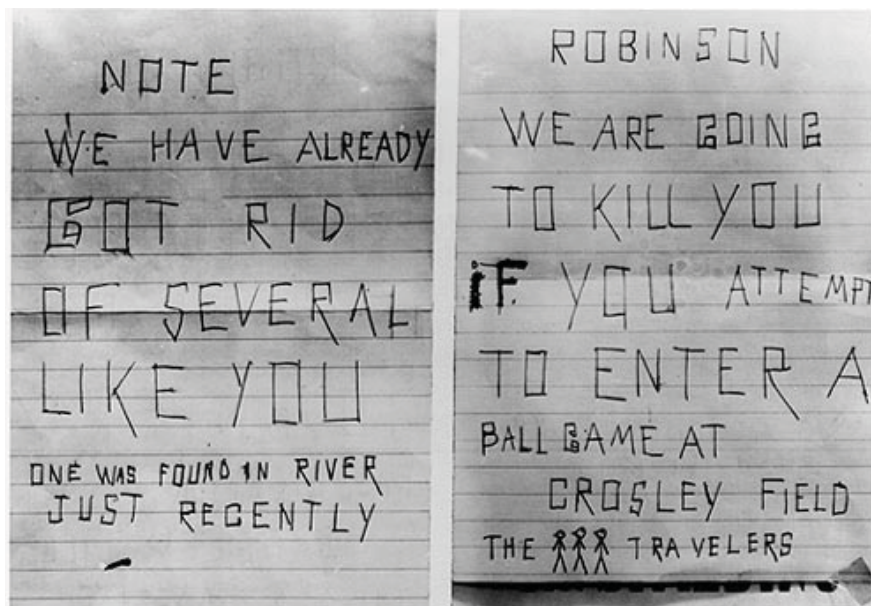 NOTE
WE HAVE ALREADY
GOT RID
OF SEVERAL
LIKE YOU
ONE WAS FOUND IN RIVER
JUST RECENTLY
ROBINSON
WE ARE GOING
TO KILL YOU
iF. YOU ATTEMPT
TO ENTER A
BALL GAME AT
CROSLEY FIELD
THE TRAVELERS